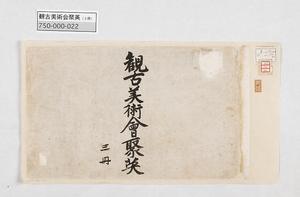 観古美術会聚英（上冊）
750-000-022
觀古美術會聚英
三冊